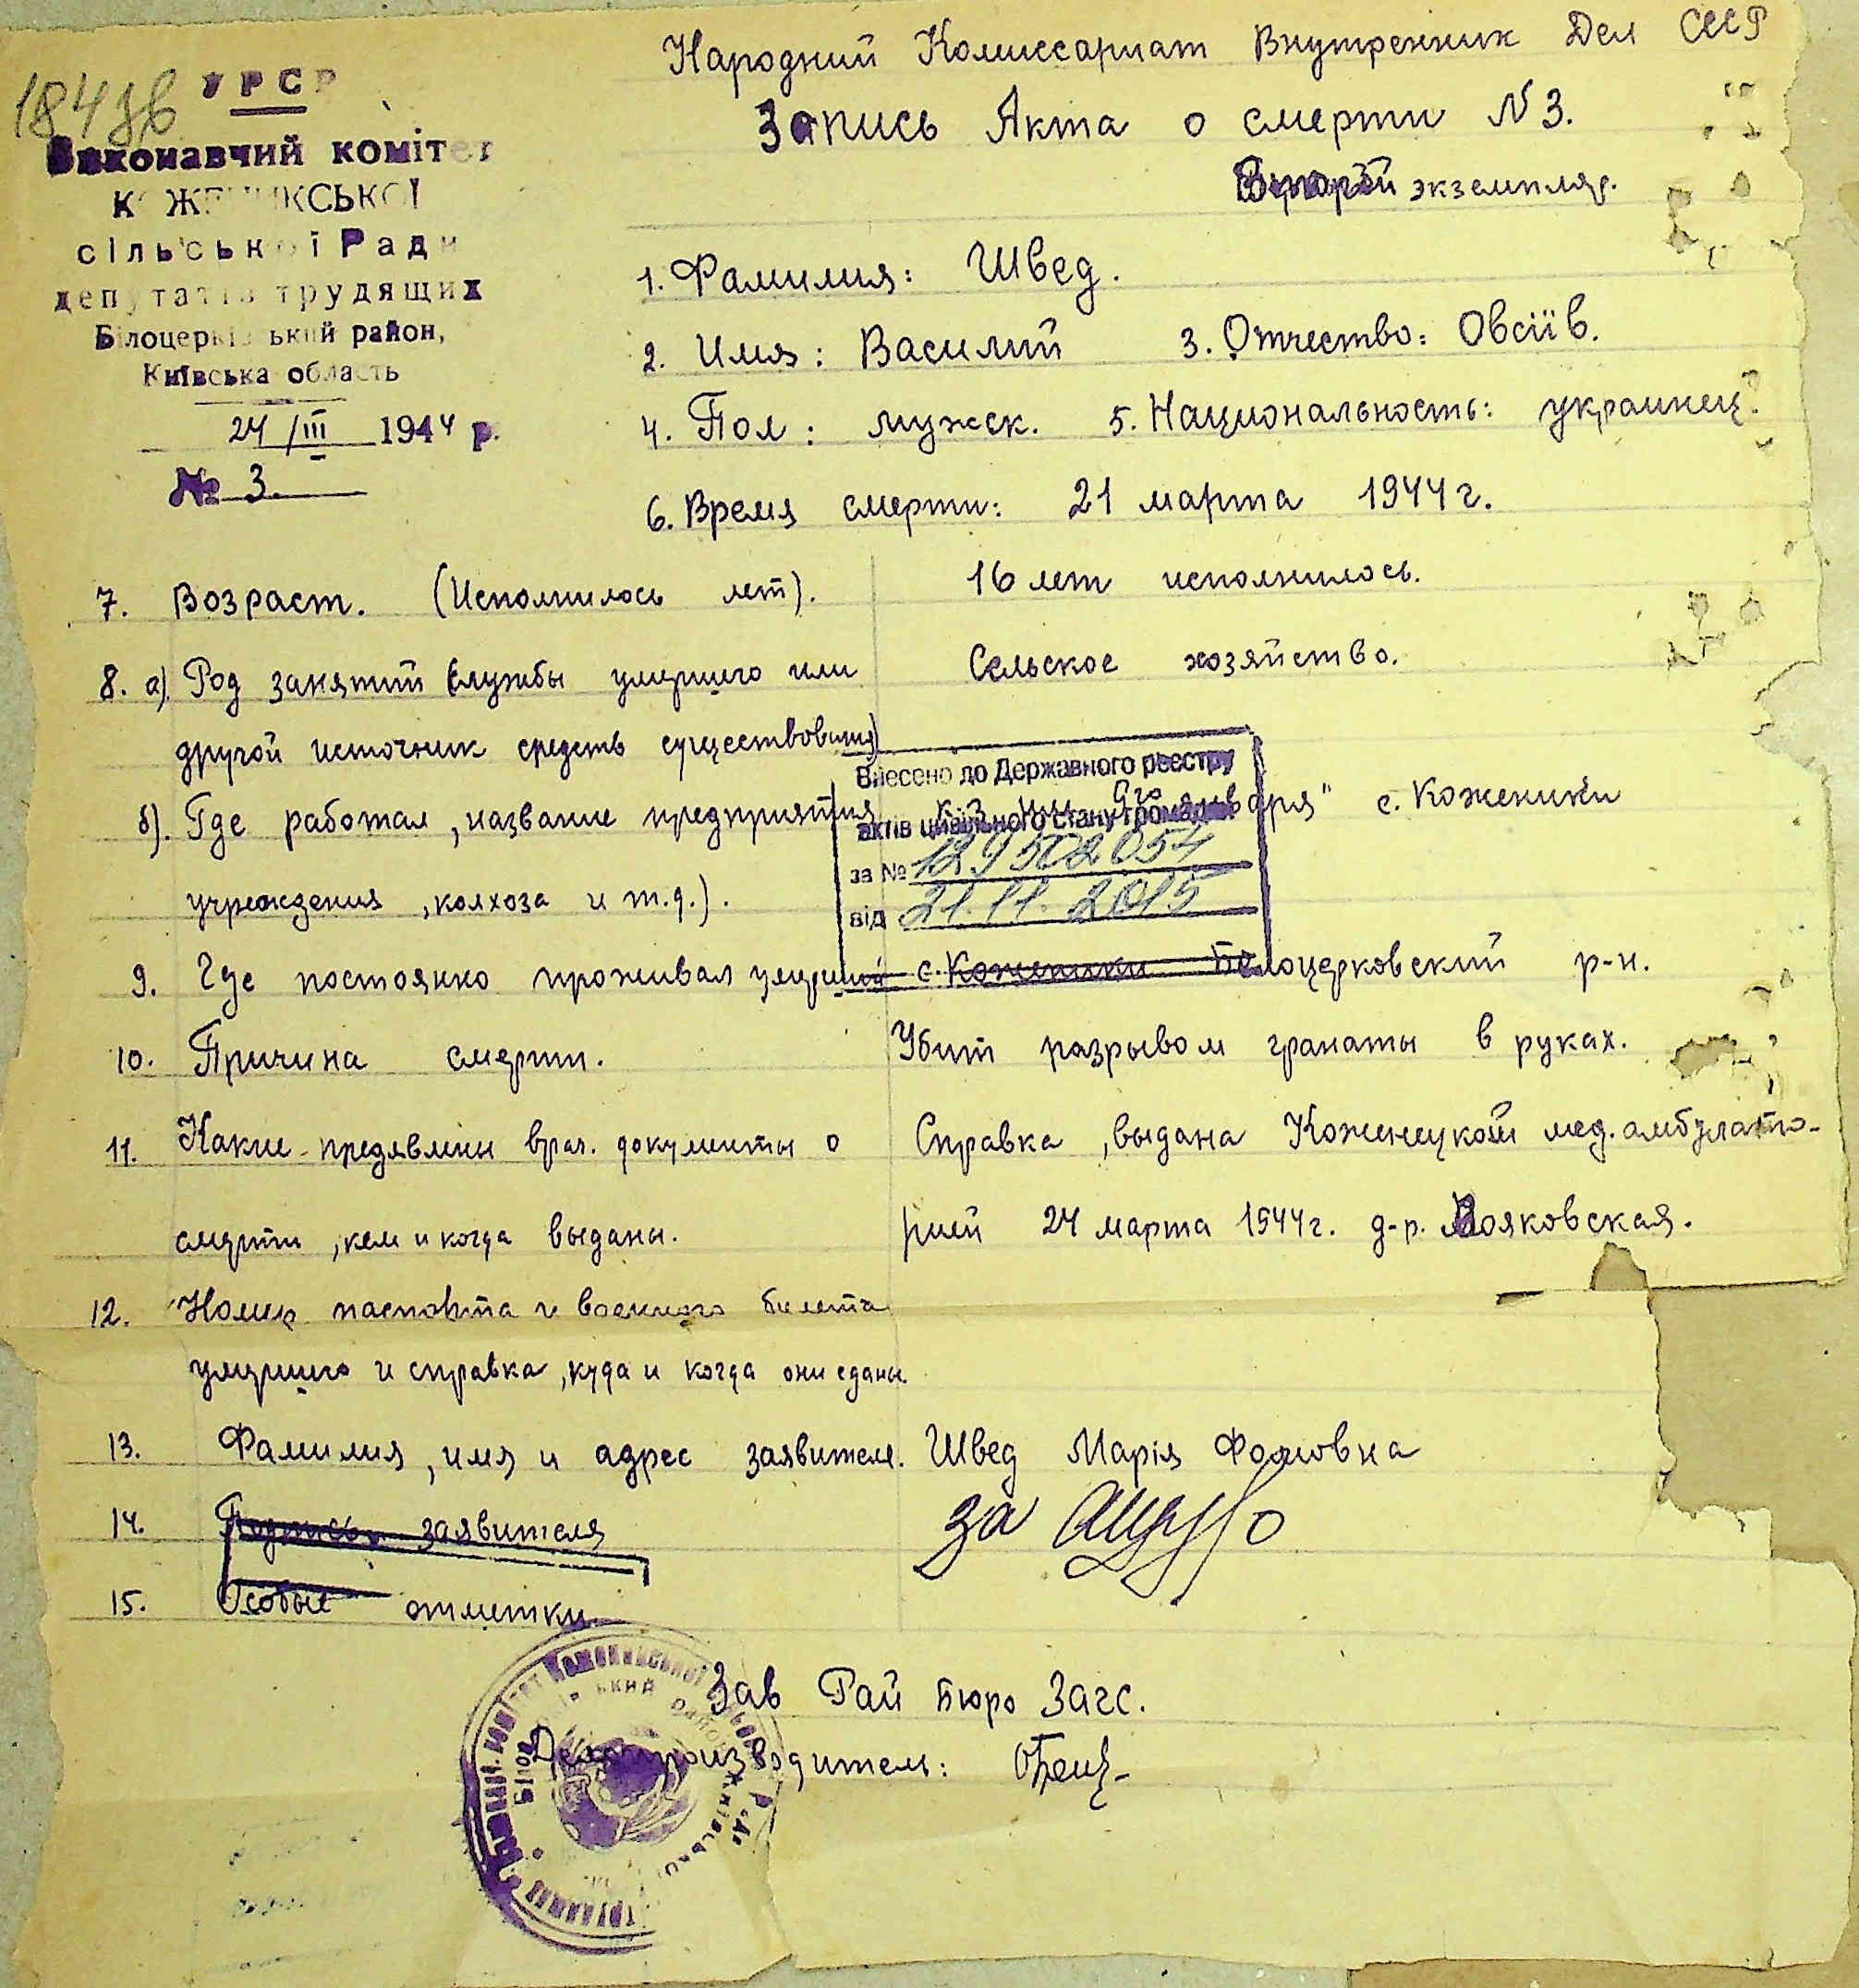 184зв
УРСР
Виконавчий комітет
КОЖЕНИКСЬКОЇ
сільської Ради
депутатів трудящих
Білоцерківський район,
Київська область
24/III 1944 р.
№ 3.
Народний Комиссариат Внутренних Дел СССР
Запись Акта о смерти N 3.
Второй экземпляр.
1. Фамилия: Швед.
2. Имя: Василий 3. Отчество: Овсіїв.
4. Пол: мужск. 5. Национальность: украинец.
6. Время смерти: 21 марта 1944 г.
7. Возраст. (Исполнилось лет). 16 лет исполнилось.
8. а) Род занятий (службы умершего или Сельское хозяйство.
другой источник средств существования)
Внесено до Державного реєстру
б). Где работал, название предприятия к-з им. 9го января" с. Коженики
актів цивільного стану громадян
за № 129502054
учреждения, колхоза и т.д.).
від 21.11.2015
9. Где постоянно проживал умерший с. Коженики Белоцерковский р-н.
10. Причина смерти. Убит разрывом гранаты в руках.
11. Какие предявлены врач. документы о Справка, выдана Коженецкой мед. амбулато-
смерти, кем и когда выданы. рией 24 марта 1944 г. д-р.
12. Номер паспорта и военного билета
умершего и справка, куда и когда они сданы.
13. Фамилия, имя и адрес заявителя. Швед Марія Фомовна
14. Подпись заявителя за
15. Особые отметки.
Зав Рай Бюро Загс.
Делопроизводитель: